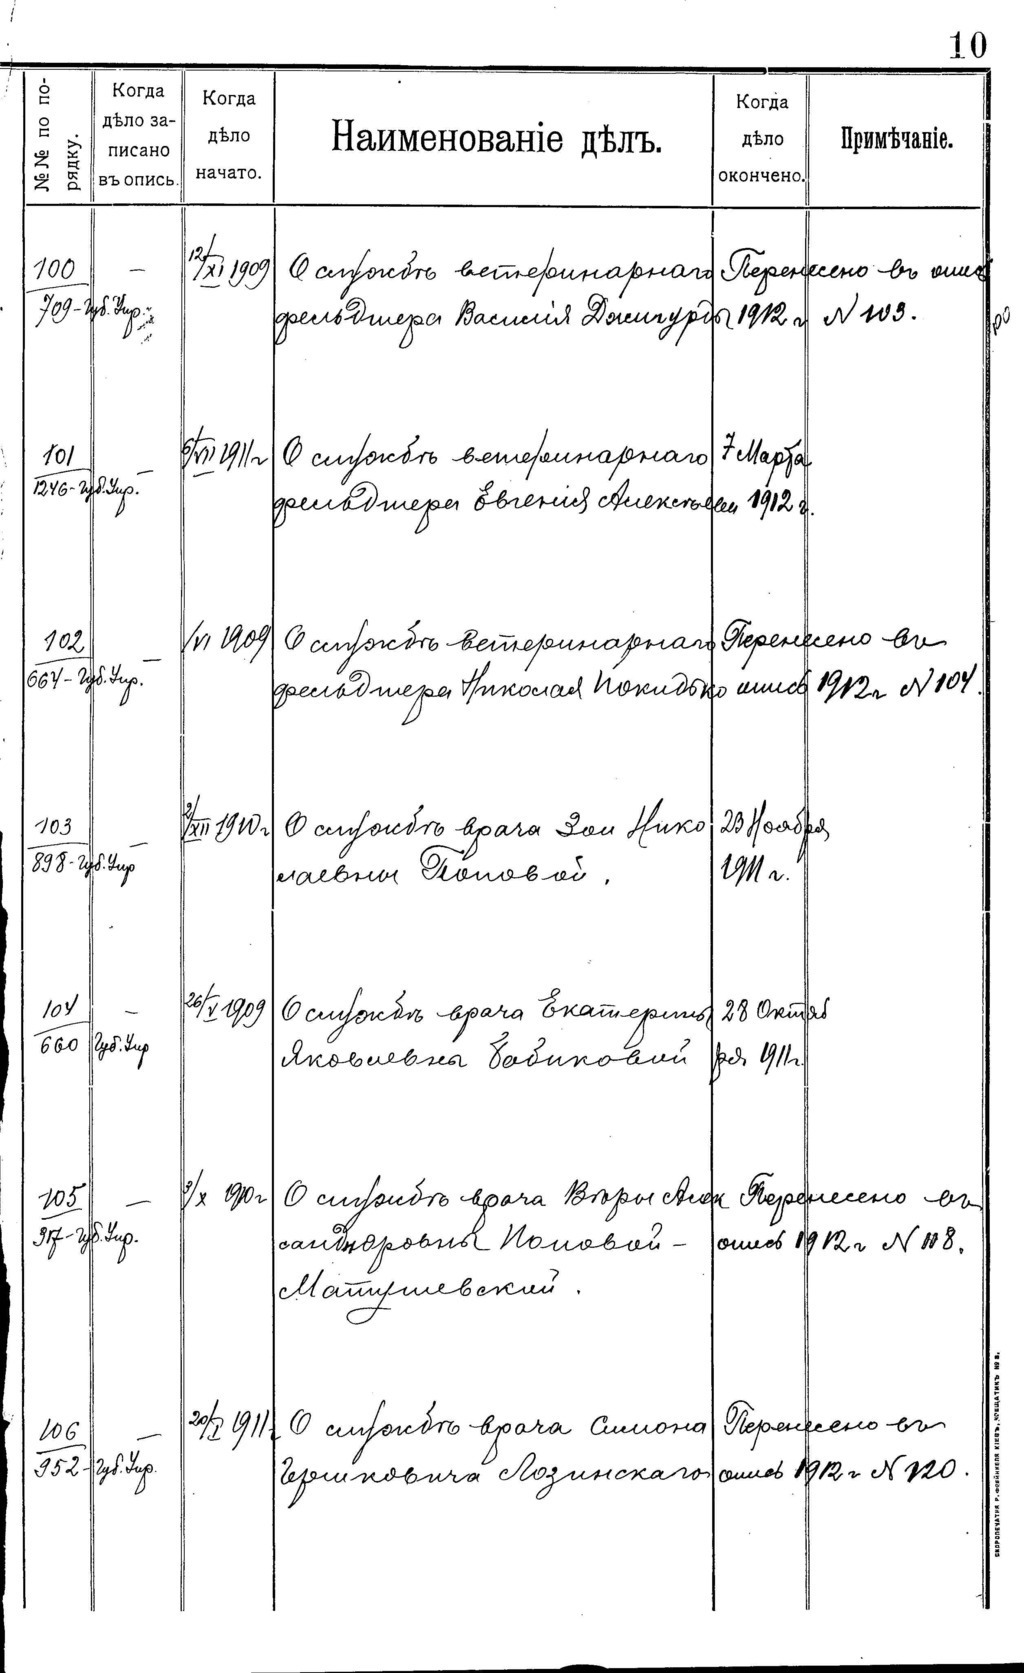 10
№№ по по-
рядку.
Когда
дѣло за-
писано
въ опись.
Когда
дѣло
начато.
Наименованіе дѣлъ.
Когда
дѣло
окончено.
Примѣчаніе.
100 — 12/XI 1909 О службѣ ветеринарнаго Перенесено въ опись
709 - Губ. Упр. фельдшера Василія Джигурды 1912 г № 103.
101 — 6/VII 1911 г О службѣ ветеринарнаго 7 Марта
1246 - Губ. Упр. фельдшера Евгенія Алексѣева 1912 г.
102 — /VI 1909 О службѣ ветеринарнаго Перенесено въ
664 - Губ. Упр. фельдшера Николая Покидько опись 1912 г № 104.
103 — 2/XII 1910 г О службѣ врача Зои Нико 23 Ноября
898 - Губ. Упр лаевны Поповой. 1911 г.
104 — 26/V 1909 О службѣ врача Екатерины 28 Октяб
660 Губ. Упр Яковлевны Бабиковой ря 1911 г.
105 — 3/X 1910 г О службѣ врача Вѣры Алек Перенесено въ
917 - Губ. Упр. сандровны Поповой - опись 1912 г № 118.
Матушевской.
106 — 20/I 1911 г О службѣ врача Симона Перенесено въ
952 - Губ. Упр. Гершковича Лозинскаго опись 1912 г № 120.